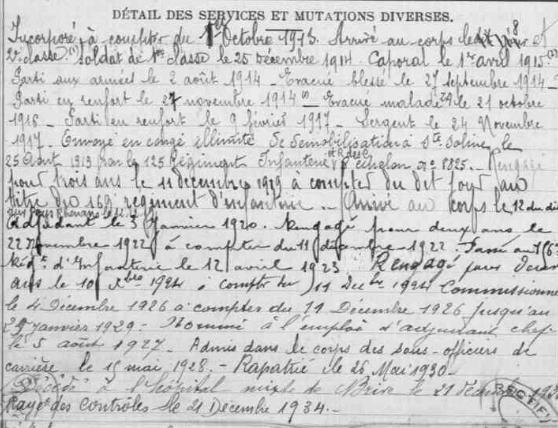 DÉTAIL DES SERVICES ET MUTATIONS DIVERSES.
Incorporé à compter du 1er Octobre 1913. Arrivé au corps le dit jour et
2e classe. (1) soldat de 1re classe le 25 Décembre 1914. Caporal le 1er avril 1915.
Parti aux armées le 2 août 1914 _ Evacué blessé le 27 septembre 1914 _
Parti en renfort le 27 novembre 1914 _ Evacué malade le 21 octobre
1916 _ Parti en renfort le 9 février 1917 _ Sergent le 24 Novembre
1917 _ Envoyé en congé illimité de démobilisation à Ste Soline le
25 Aout 1919 par le 125 Régiment Infanterie echelon no 8325. Rengagé
pour trois ans le 11 décembre 1919 à compter du dit jour au
titre du 169 regiment d'infanterie _ Arrivé au corps le 12 du dit
aux Pays Rhénans le 12.12.19
Adjudant le 3 Janvier 1920. Rengagé pour deux ans le
22 Novembre 1922 à compter du 11 décembre 1922. Passé au
Régt d'Infanterie le 12 avril 1923. Rengagé pour deux
ans le 10 Xbre 1924 à compter du 11 Decbre 1924 Commissionné
le 4 Décembre 1926 à compter du 11 Décembre 1926 jusqu'au
janvier 1929 _ Nommé à l'emploi d'adjudant chef
le 5 août 1927. _ Admis dans le corps des sous-officiers de
carrière le 15 mai 1928. _ Rapatrié le 26 Mai 1930 _
Décédé à l'hôpital mixte de Brive le 21 Décembre
Rayé des contrôles le 21 Décembre 1934. _